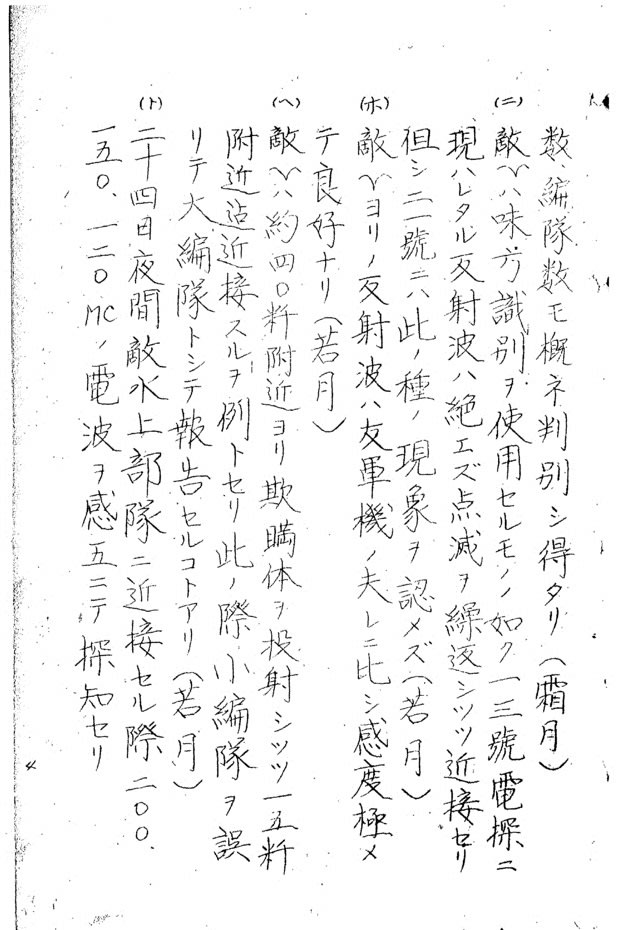 数、編隊数モ概ネ判別シ得タリ(霜月)
(ニ) 敵〱ハ味方識別ヲ使用セルモノノ如ク一三號電探ニ
現ハレタル反射波ハ絶エズ点滅ヲ繰返シツツ近接セリ
但シ二一號ニハ此ノ種ノ現象ヲ認メズ(若月)
(ホ) 敵〱ヨリノ反射波ハ友軍機ノ夫レニ比シ感度極メ
テ良好ナリ(若月)
(ヘ) 敵〱ハ約四〇粁附近ヨリ欺瞞体ヲ投射シツツ一五粁
附近迄近接スルヲ例トセリ此ノ際小編隊ヲ誤
リテ大編隊トシテ報告セルコトアリ(若月)
(ト) 二十四日夜間敵水上部隊ニ近接セル際二〇〇.
一五〇.一二〇MCノ電波ヲ感五ニテ探知セリ